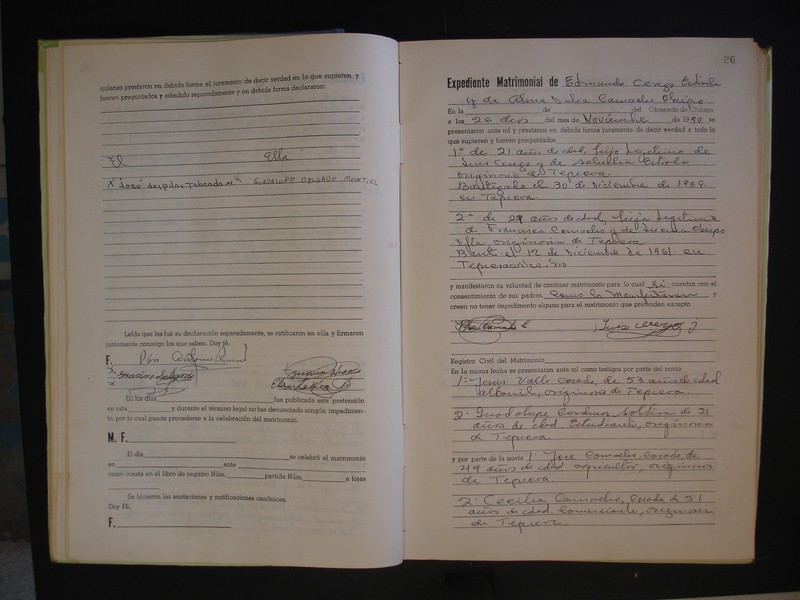 quienes prestaron en debida forma el juramento de decir verdad en lo que supieren y
fueren preguntados y siéndolo separadamente y en debida forma declararon:
El ella
X José del pilar taboada M GUADALUPE DELGADO MONTIEL
Leída que les fué su declaración separadamente, se ratificaron en ella y firmaron
juntamente conmigo los que saben. Doy fé.
F.
En los días fue publicada esta pretensión
en esta y durante el término legal no fue denunciado ningún impedimen-
to por lo cual puede procederse a la celebración del matrimonio.
M. F.
El día se celebró el matrimonio
en ante
como consta en el libro de registro Núm. partida Núm. a fojas
Se hicieron las anotaciones y notificaciones canónicas.
Doy Fé.
F.
26
Expediente Matrimonial de Edmundo Cerezo Estrada
y de Alma Delia Camacho Ocampo
En la de del Obispado de Chilapa
a los 26 dias del mes de Noviembre de 1990 se
presentaron ante mí y prestaron en debida forma juramento de decir verdad a todo lo
que supieren y fueren preguntados
1° de 21 años de edad, hijo Legitimo de
Luis Cerezo y de Estrada
originario de Tepecoa.
Bautizado el 30 de Diciembre de 1969.
en Tepecoa
2° de 29 años de edad, hija Legitima
de Francisco Camacho y de Ocampo
Villa, originaria de Tepecoa
Baut. el 12 de Diciembre de 1961 en
Gro
y manifestaron su voluntad de contraer matrimonio para lo cual Si cuentan con el
consentimiento de sus padres, como lo Manifestaron y
creen no tener impedimento alguno para el matrimonio que pretenden excepto
Luis Cerezo
Registro Civil del Matrimonio
En la misma fecha se presentaron ante mí como testigos por parte del novio
1° Jesus Valle Casado, de 53 años de edad
albañil, originario de Tepecoa.
2° Guadalupe Soltera de 21
años de edad Estudiante, originaria
de Tepecoa
y por parte de la novia 1° Jose Camacho, Casado, de
49 años de edad agricultor, originario
de Tepecoa.
2° Cecilia Camacho, Casada de 51
años de edad. Comerciante, originaria
de Tepecoa